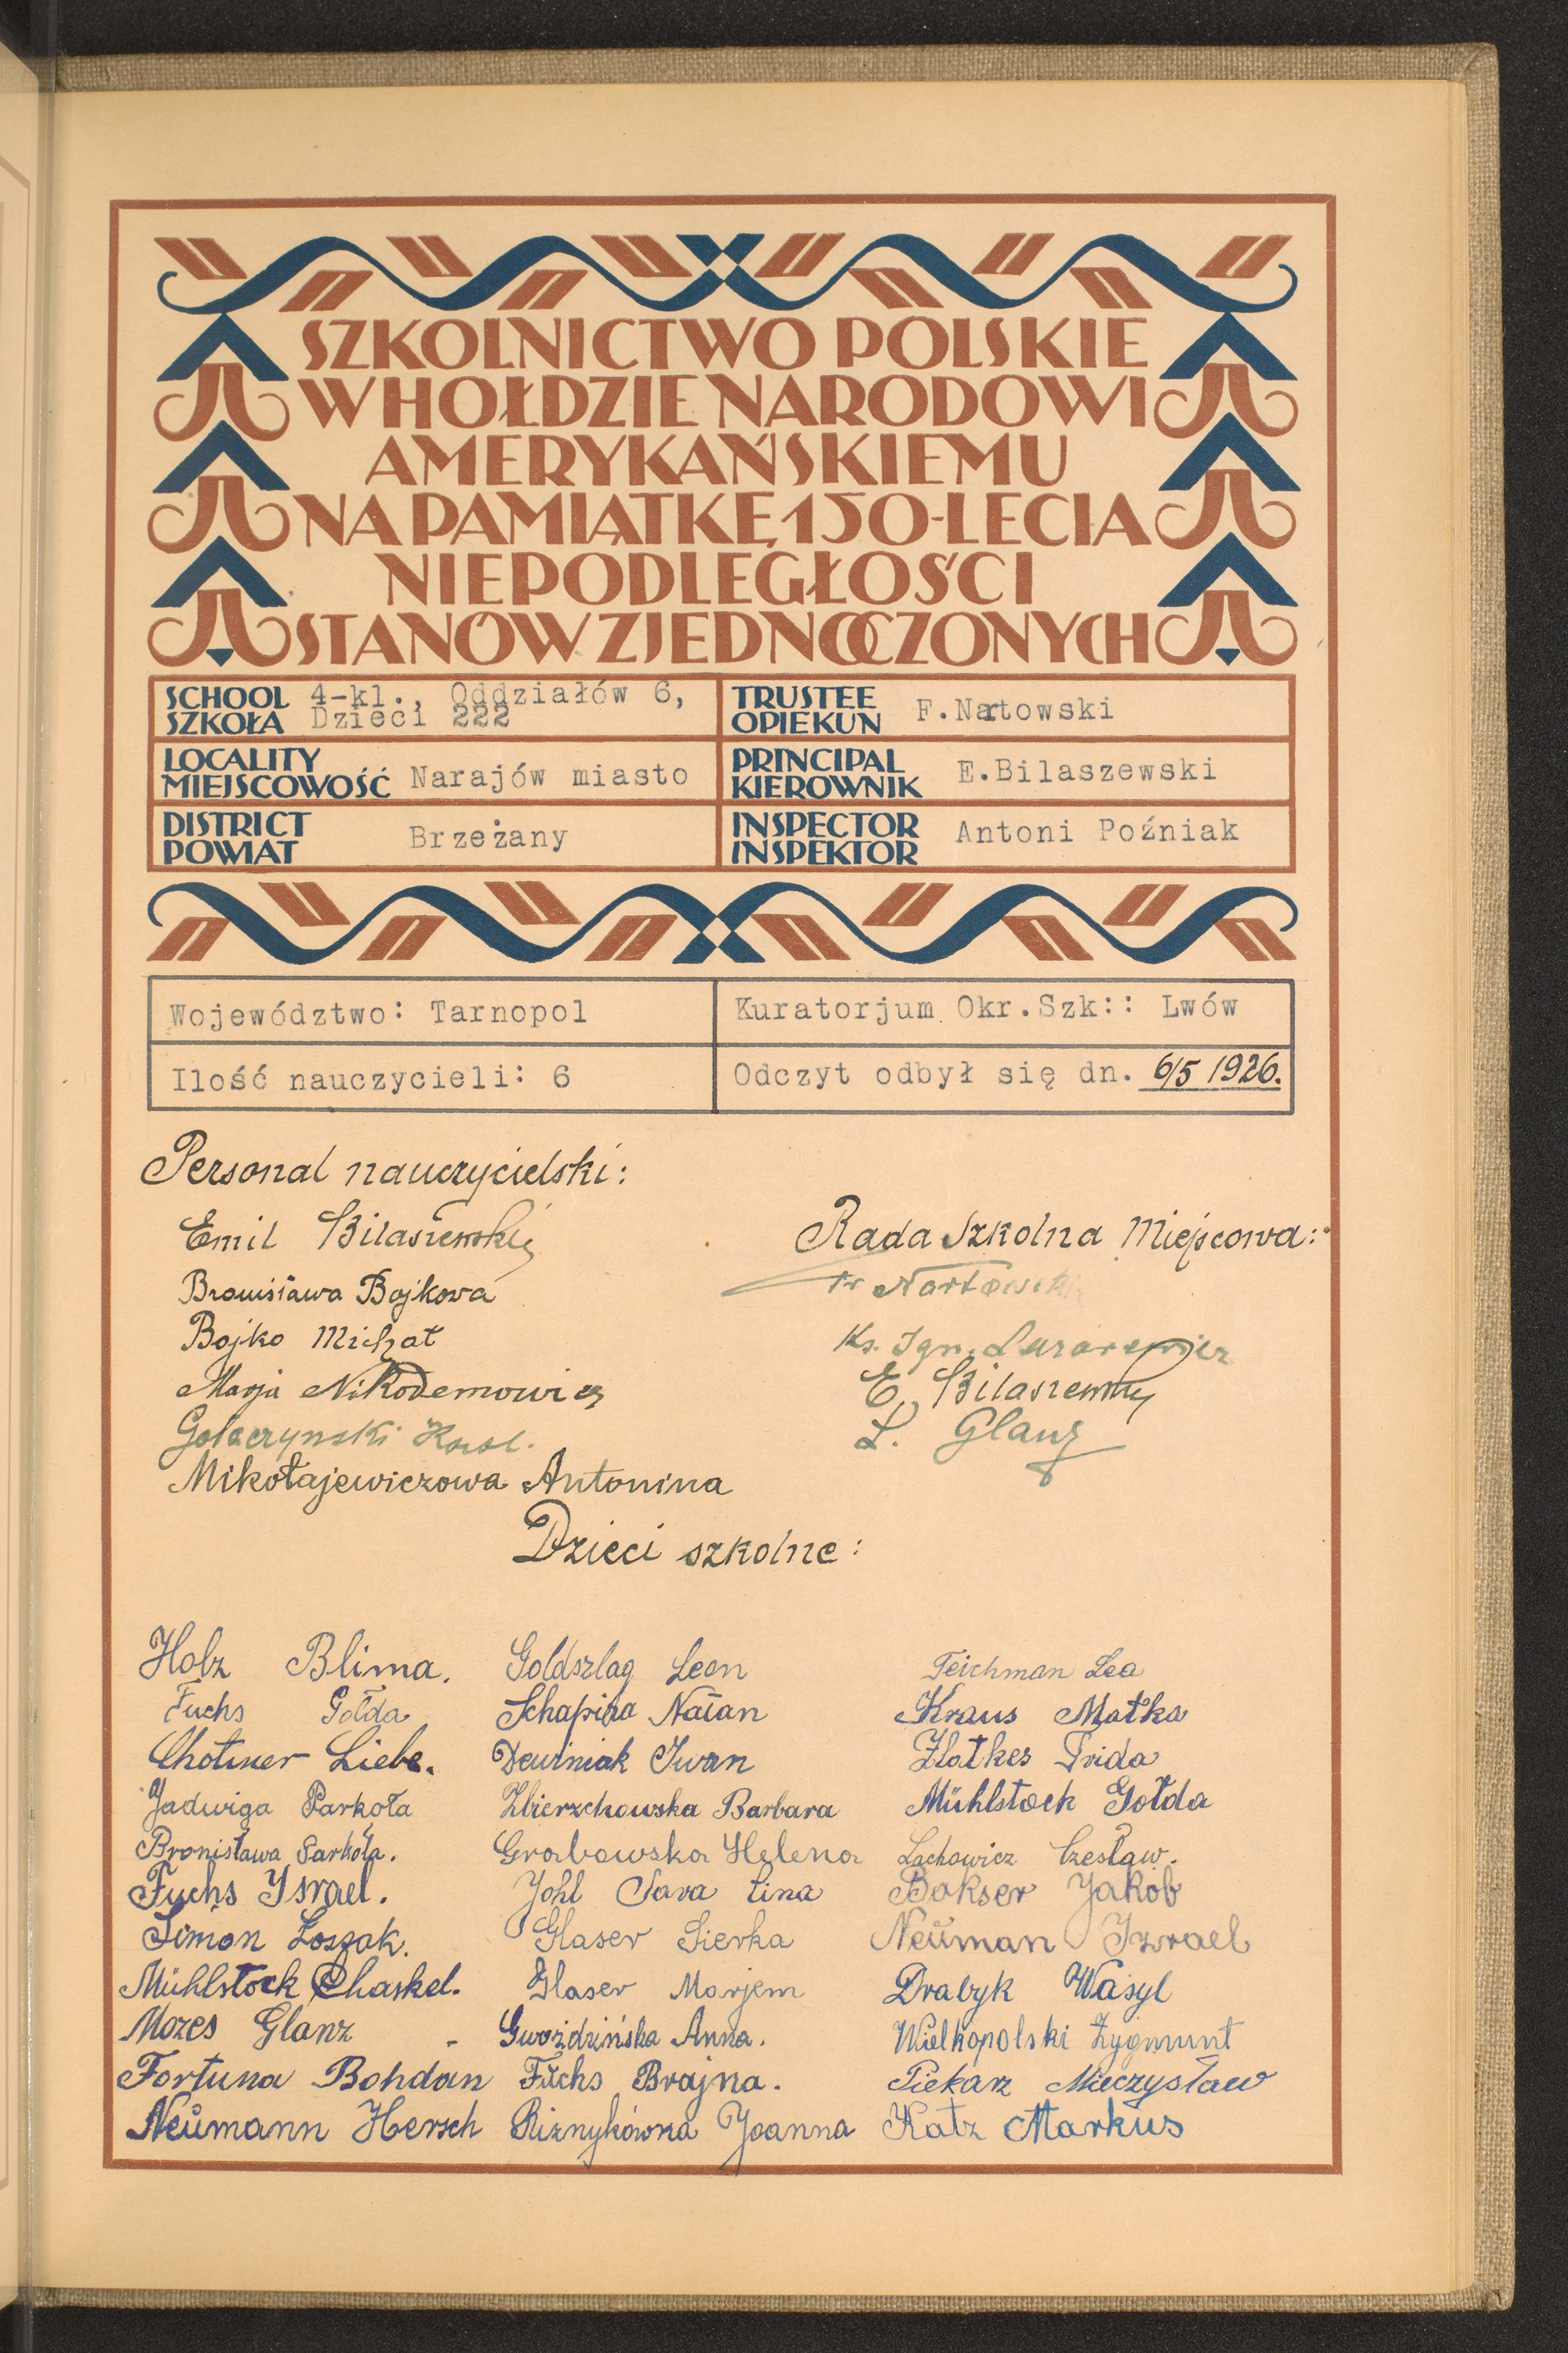 SZKOLNICTWO POLSKIE
W HOŁDZIE NARODOWI
AMERYKAŃSKIEMU
NA PAMIĄTKĘ 150-LECIA
NIEPODLEGŁOŚCI
STANÓW ZJEDNOCZONYCH
SCHOOL SZKOŁA 4-kl., Oddziałów 6, Dzieci 222
TRUSTEE OPIEKUN F.Nartowski
LOCALITY MIEJSCOWOŚĆ Narajów miasto
PRINCIPAL KIEROWNIK E.Bilaszewski
DISTRICT POWIAT Brzeżany
INSPECTOR INSPEKTOR Antoni Poźniak
Województwo: Tarnopol
Kuratorjum Okr.Szk:: Lwów
Ilość nauczycieli: 6
Odczyt odbył się dn. 6/5 1926.
Personal nauczycielski:
Emil Bilaszewski
Bronisława Bojkowa
Bojko Michał
Marja Nikodemowicz
Gołaczynski Karol.
Mikołajewiczowa Antonina
Rada Szkolna Miejscowa:
Nartowski
Ks. Ign. Lazarewicz
E. Bilaszewski
L. Glanz
Dzieci szkolne:
Holz Blima. Goldszlag Leon Teichman Lea
Fuchs Gołda Schapira Natan Kraus Matka
Chotiner Liebe. Dewiniak Iwan Zlatkes Frida
Jadwiga Parkoła Zbierzchowska Barbara Mühlstock Gołda
Bronisława Parkoła. Grabowska Helena Lachowicz Czesław.
Fuchs Ysrael. Johl Sara Lina Bokser Jakób
Simon Loszak. Glaser Sierka Neuman Izrael
Mühlstock Chaskel. Glaser Marjem Drabyk Wasyl
Mozes Glanz - Gwoździńska Anna. Wielkopolski Zygmunt
Fortuna Bohdan Fuchs Brajna. Piekarz Mieczysław
Neumann Hersch Riznykówna Joanna Katz Markus